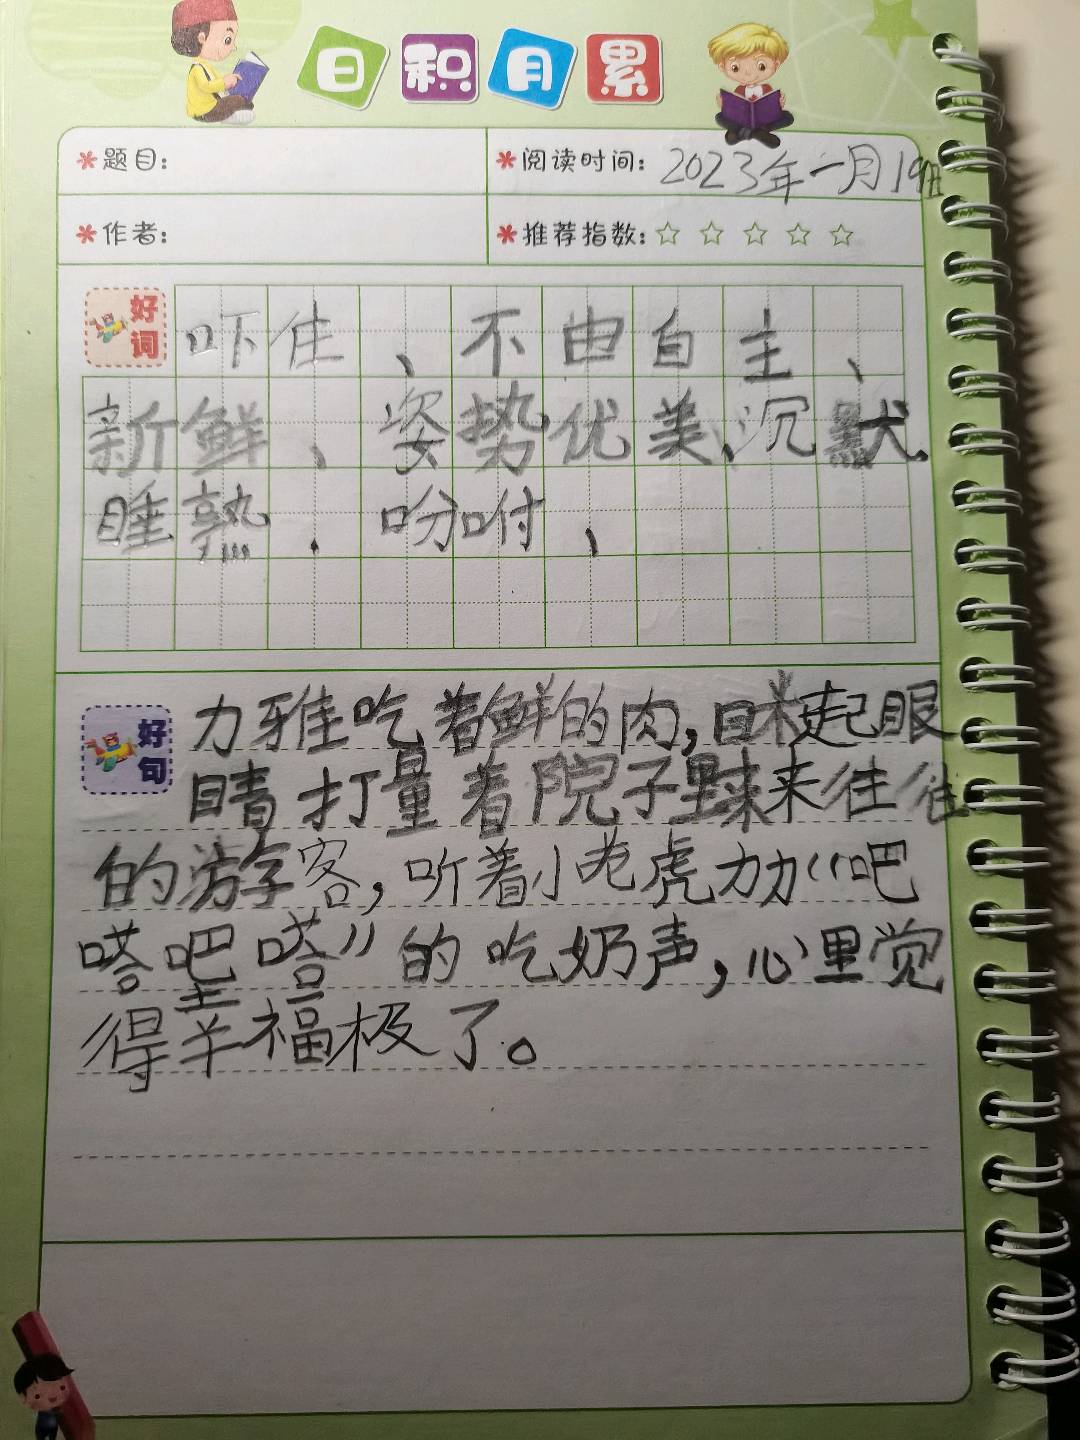 日积月累
*题目:
*阅读时间: 2023年一月19日
*作者:
*推荐指数: ☆ ☆ ☆ ☆ ☆
好词
吓住、不由自主、
新鲜、姿势优美、沉默
睡熟．吩咐、
好句
力雅吃着鲜的肉，日米起眼
睛打量着院子里来来往往
的游客，听着小老虎力力“吧
嗒吧嗒”的吃奶声，心里觉
得羊福极了。